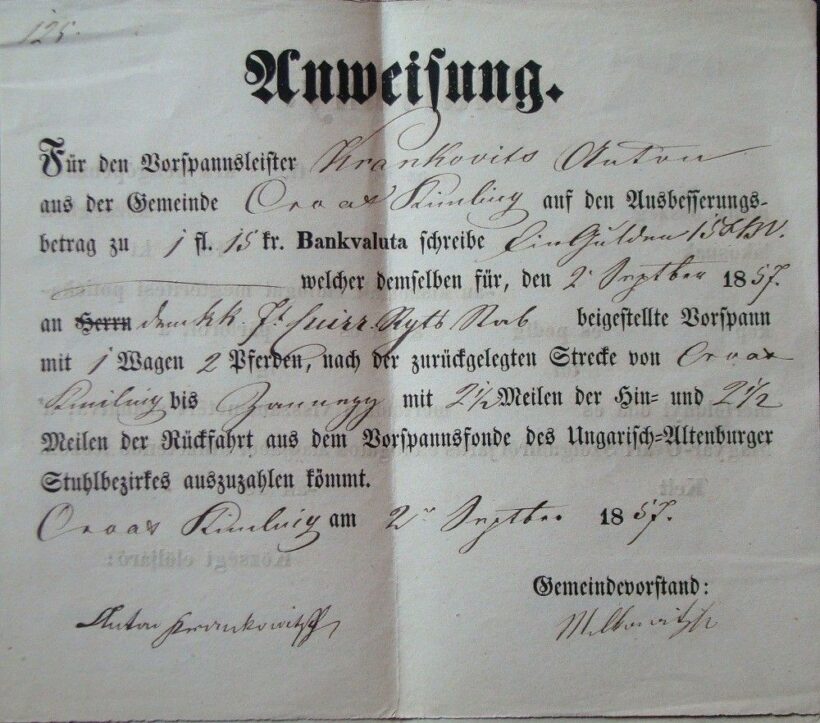 125.
Anweisung.
Für den Vorspannsleister Krankovits Anton
aus der Gemeinde Oroas Kimling auf den Ausbesserungs-
betrag zu 1 fl. 15 kr. Bankvaluta schreibe Ein Gulden 15 x BV.
welcher demselben für, den 2. Septber 1857.
an Herrn dem kk Cuirr. Rgts Stab beigestellte Vorspann
mit 1 Wagen 2 Pferden, nach der zurückgelegten Strecke von Oroas
Kimling bis Zanegg mit 2 1/2 Meilen der Hin- und 2 1/2
Meilen der Rückfahrt aus dem Vorspannsfonde des Ungarisch-Altenburger
Stuhlbezirkes auszuzahlen kömmt.
Oroas Kimling am 2. Septber 1857.
Gemeindevorstand:
Anton Krankowitsch